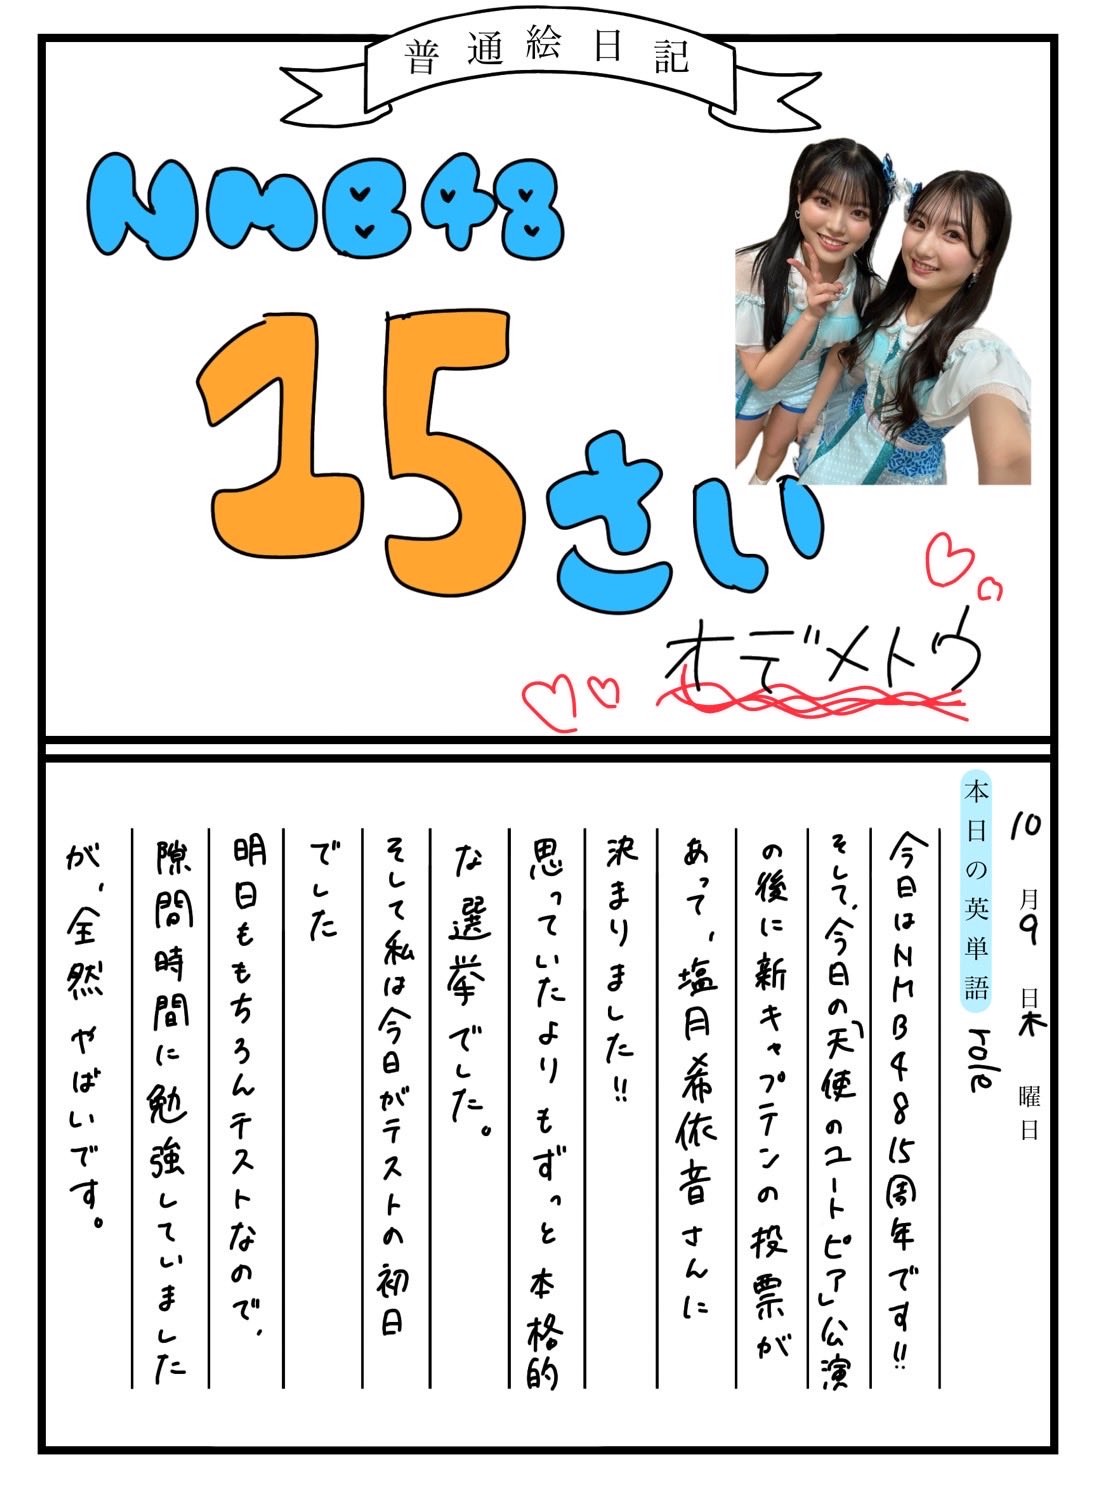 普通絵日記
NMB48
15さい
オデメトウ
10月9日木曜日
本日の英単語 role
今日はNMB48 15周年です!!
そして、今日の「天使のユートピア」公演
の後に新キャプテンの投票が
あって、塩月希依音さんに
決まりました!!
思っていたよりもずっと本格的
な選挙でした。
そして私は今日がテストの初日
でした
明日ももちろんテストなので、
隙間時間に勉強していました
が、全然やばいです。